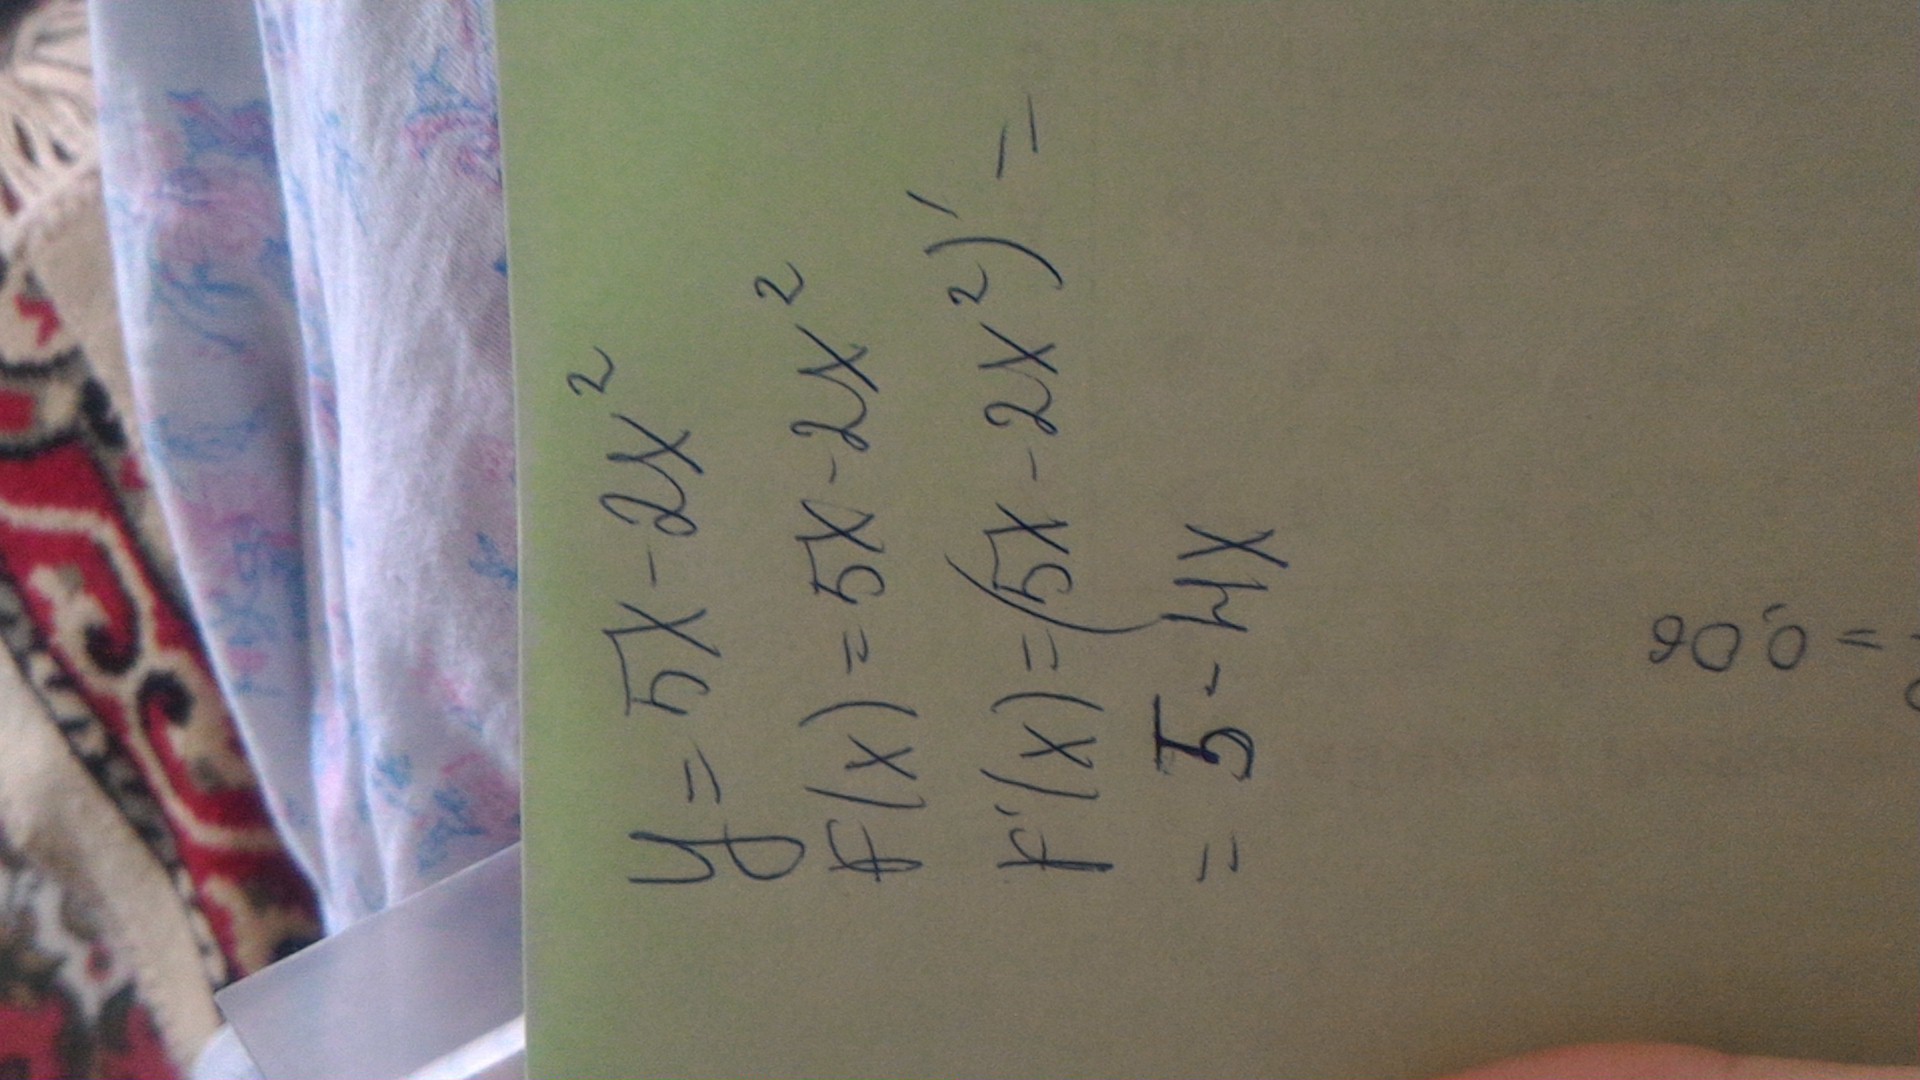 y = 5x - 2x²
f(x) = 5x - 2x²
f'(x) = (5x - 2x²)' =
= 5 - 4x